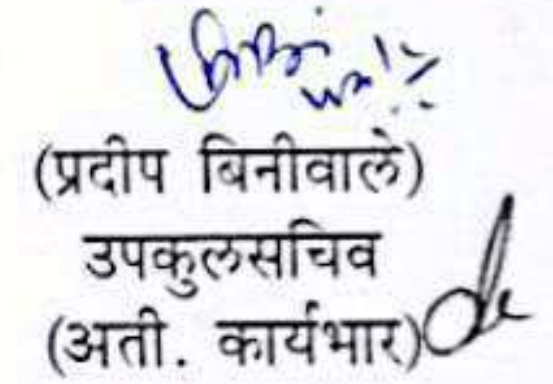 (प्रदीप बिनीवाले)
उपकुलसचिव
(अती. कार्यभार)